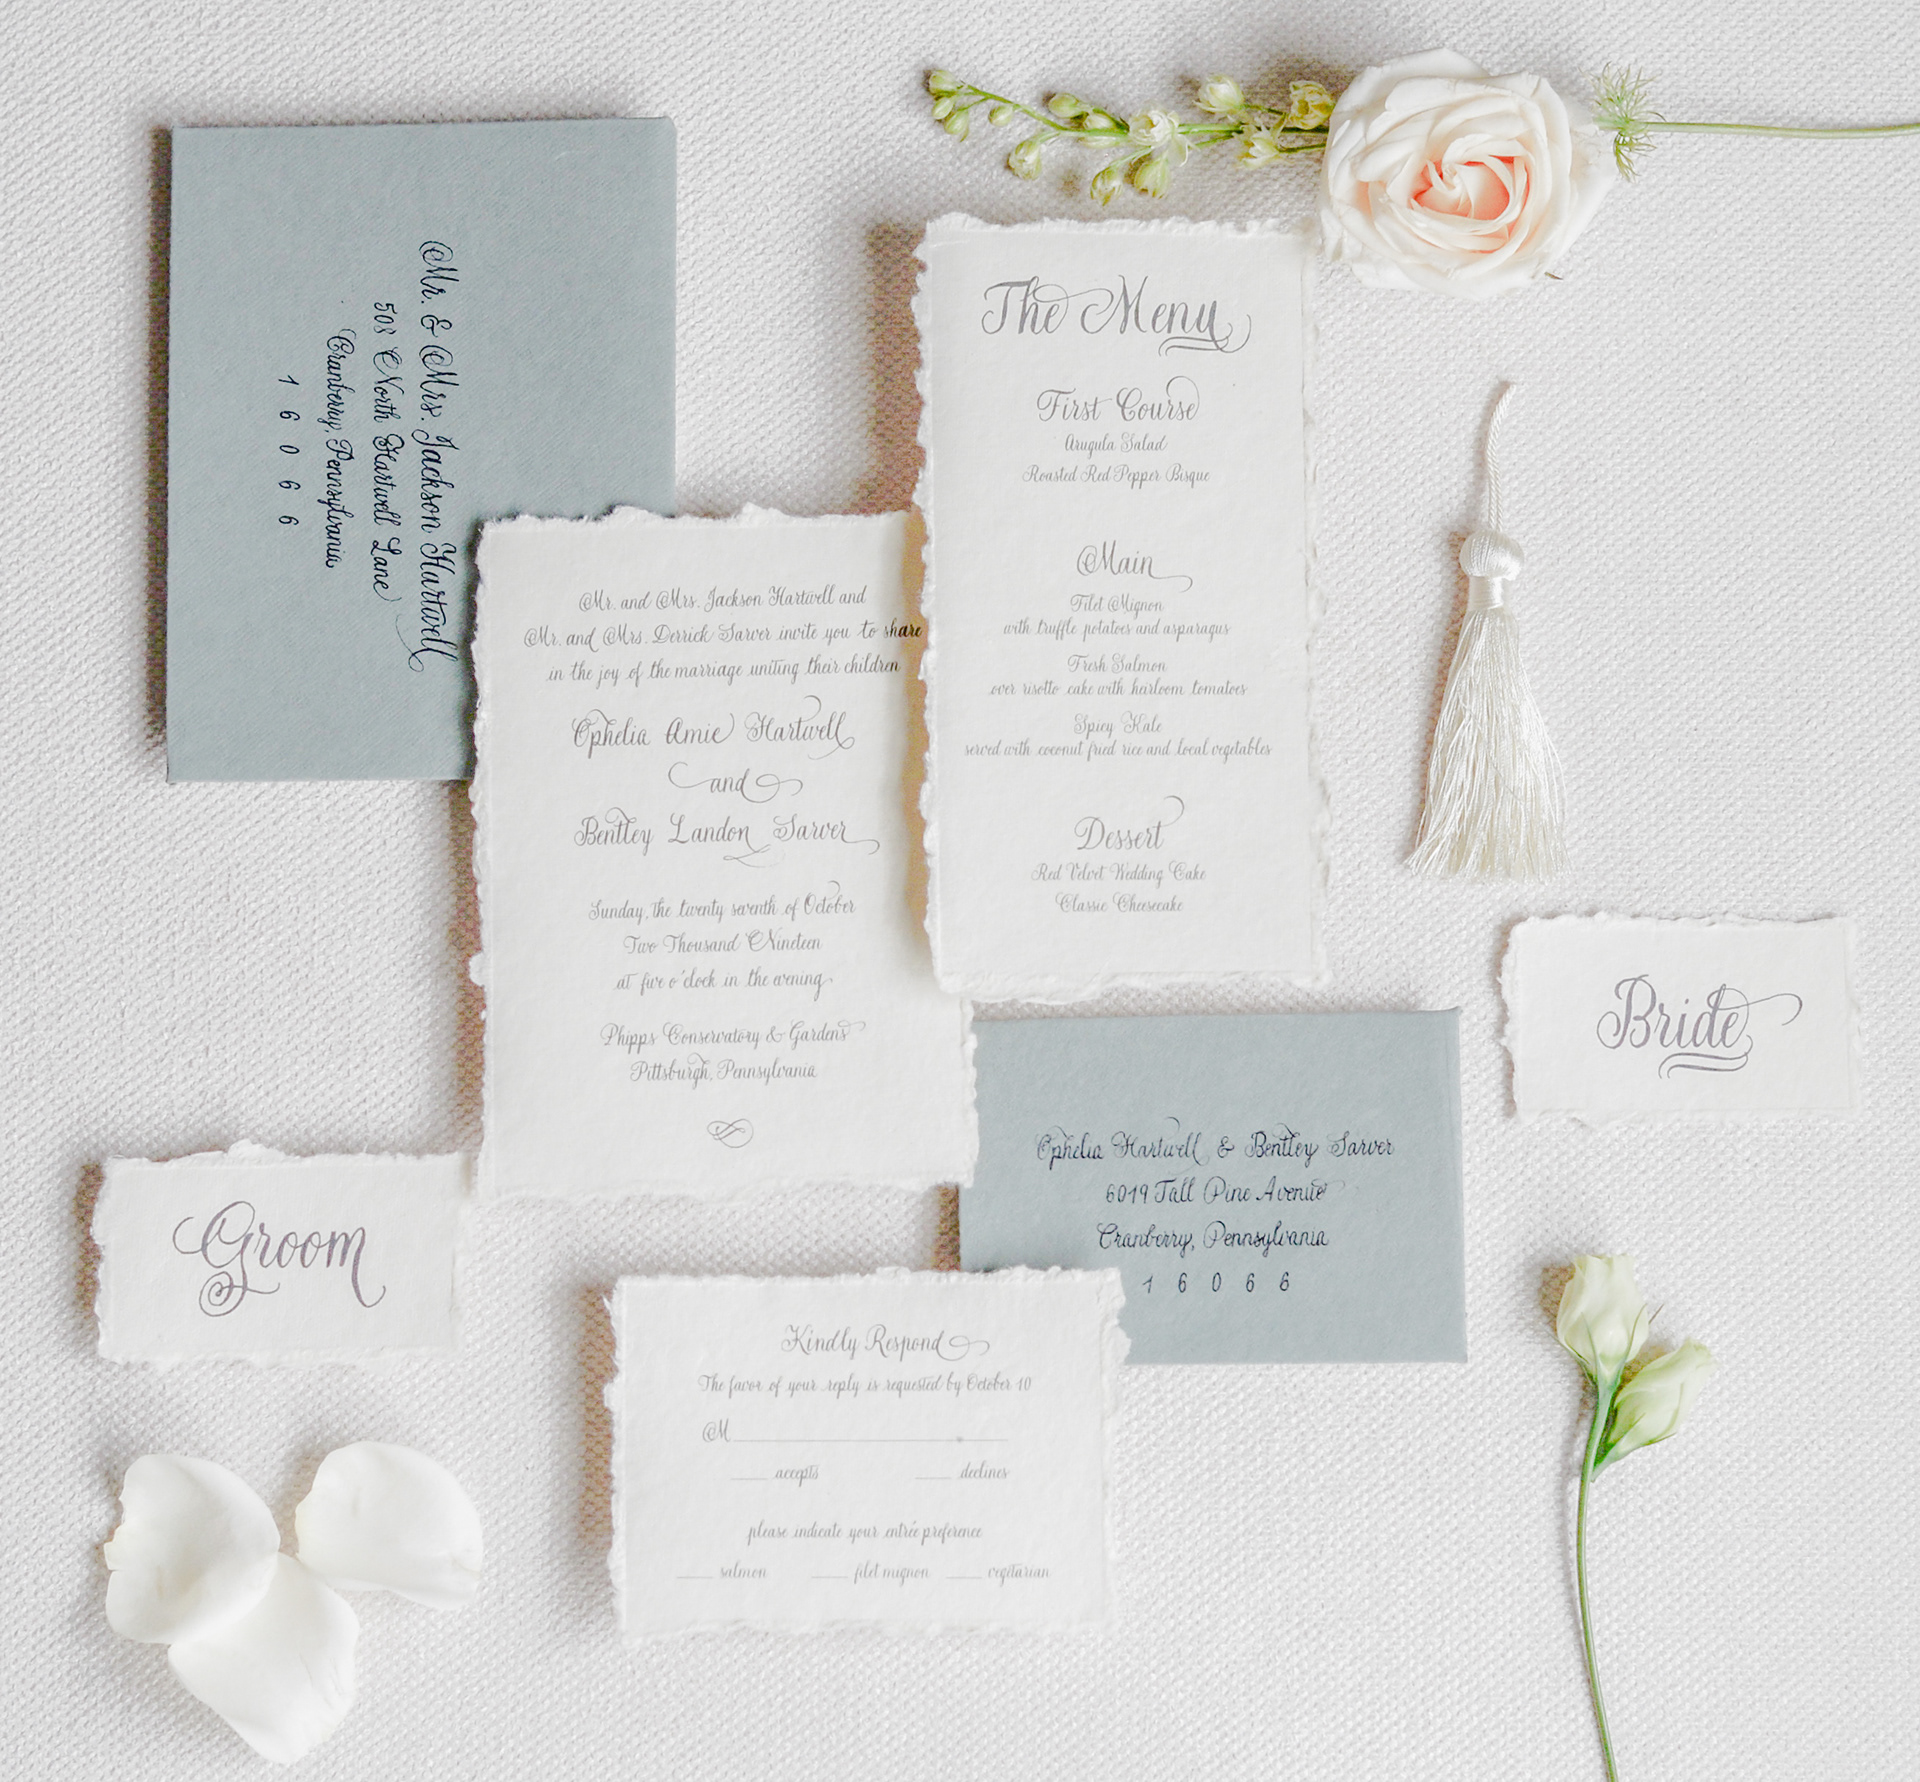 Mr. & Mrs. Jackson Hartwell
508 North Hartwell Lane
Cranberry, Pennsylvania
16066
The Menu
First Course
Arugula Salad
Roasted Red Pepper Bisque
Main
Filet Mignon
with truffle potatoes and asparagus
Fresh Salmon
over risotto cake with heirloom tomatoes
Spicy Kale
served with coconut fried rice and local vegetables
Dessert
Red Velvet Wedding Cake
Classic Cheesecake
Mr. and Mrs. Jackson Hartwell and
Mr. and Mrs. Derrick Sarver invite you to share
in the joy of the marriage uniting their children
Ophelia Amie Hartwell
and
Bentley Landon Sarver
Sunday, the twenty seventh of October
Two Thousand Nineteen
at five o'clock in the evening
Phipps Conservatory & Gardens
Pittsburgh, Pennsylvania
Bride
Groom
Ophelia Hartwell & Bentley Sarver
6019 Tall Pine Avenue
Cranberry, Pennsylvania
16066
Kindly Respond
The favor of your reply is requested by October 10
M
accepts declines
please indicate your entrée preference
salmon filet mignon vegitarian